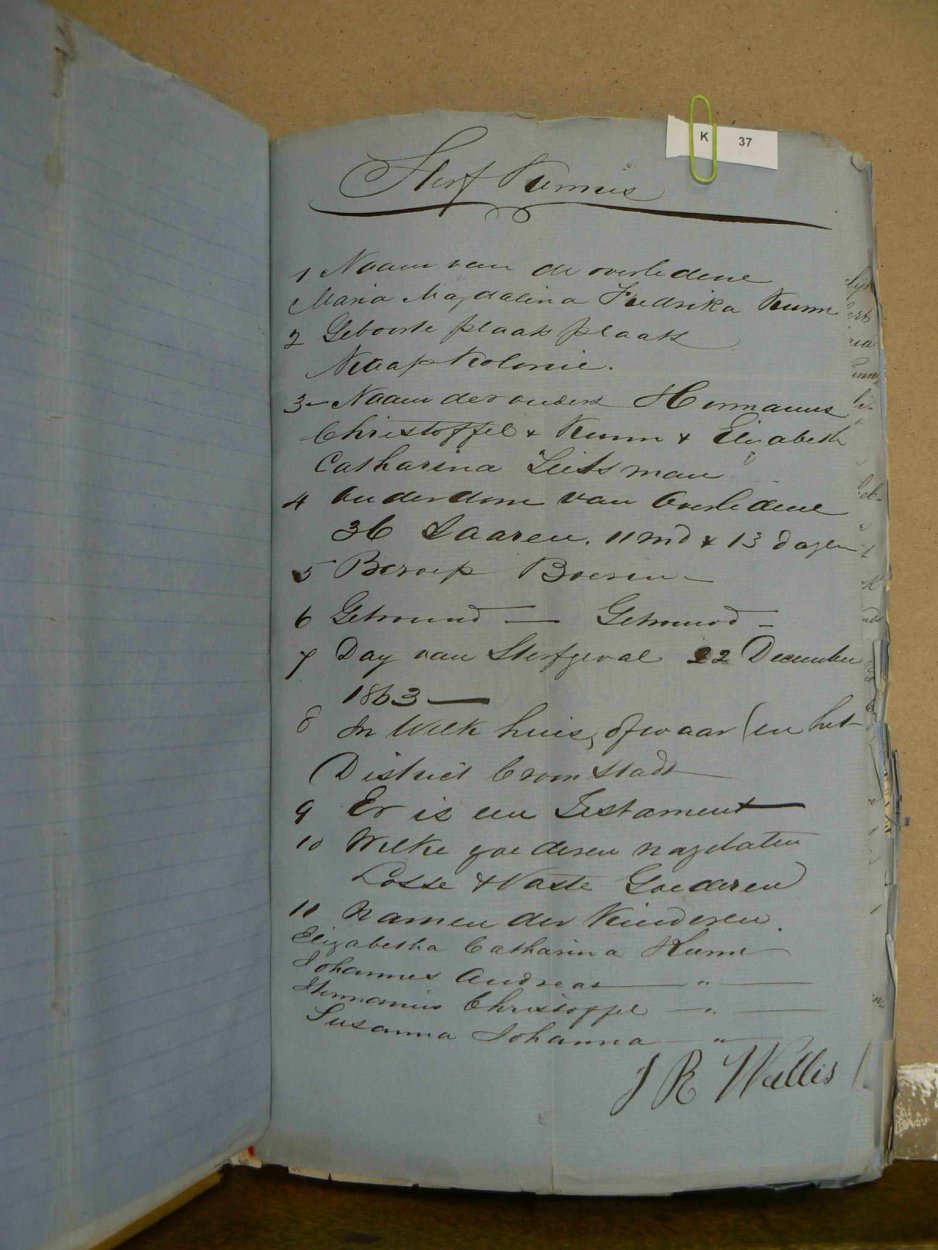 K 37
Sterf Kennis
1 Naam van de overledene
Maria Magdalina Fredrika Kumm
2 Geboorte plaats plaats
Kaap Kolonie.
3 - Naam der ouders Hermanus
Christoffel & Kumm & Elizabeth
Catharina Lietsman
4 Ouderdom van Overledene
36 Jaaren. 11 md & 13 dagen
5 Beroep Boerin -
6 Getrouwd — Getrouwd -
7 Day van Sterfgeval 22 December
1863 —
8 In Welk huis, of waar (in het
District Croonstadt
9 Er is een Testament —
10 Welke goederen nagelaten
Losse & Vaste Goederen
11 Namen der Kinderen.
Elizabetha Catharina Kumm
Johannes Andreas — " —
Hermanus Christoffel — " —
Susanna Johanna — " —
J R Wallis